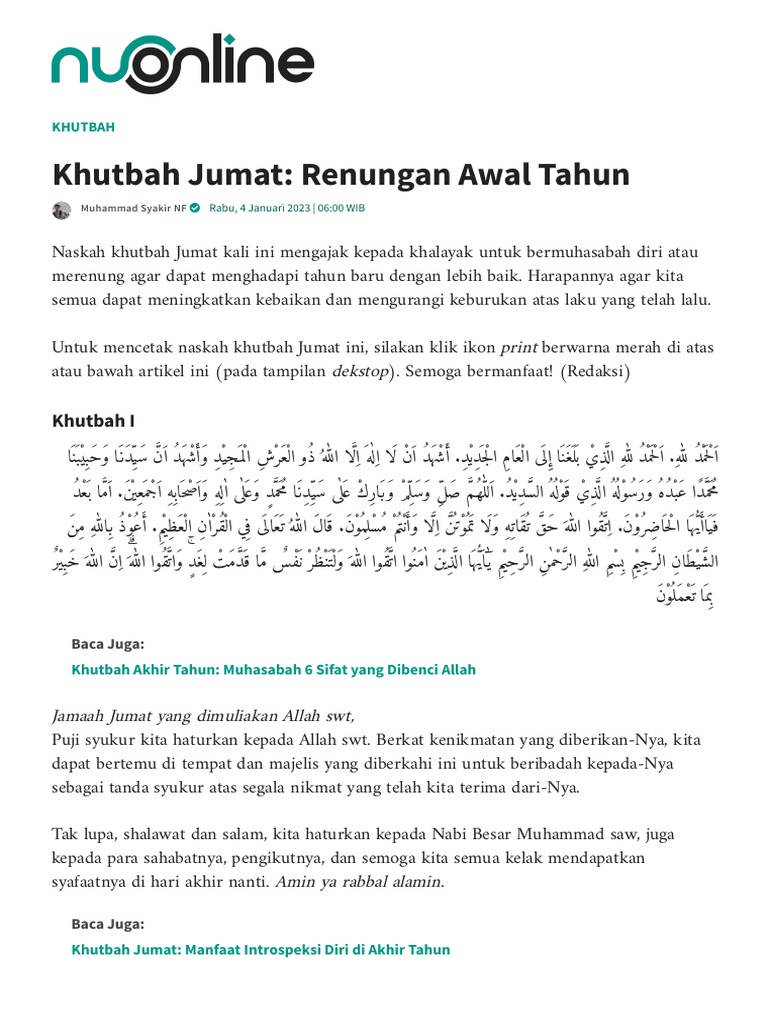 nuonline
KHUTBAH
Khutbah Jumat: Renungan Awal Tahun
Muhammad Syakir NF Rabu, 4 Januari 2023 | 06:00 WIB
Naskah khutbah Jumat kali ini mengajak kepada khalayak untuk bermuhasabah diri atau
merenung agar dapat menghadapi tahun baru dengan lebih baik. Harapannya agar kita
semua dapat meningkatkan kebaikan dan mengurangi keburukan atas laku yang telah lalu.
Untuk mencetak naskah khutbah Jumat ini, silakan klik ikon print berwarna merah di atas
atau bawah artikel ini (pada tampilan dekstop). Semoga bermanfaat! (Redaksi)
Khutbah I
اَلْحَمْدُ لِلهِ. اَلْحَمْدُ لِلهِ الَّذِيْ بَلَغَنَا إِلَى الْعَامِ الْجَدِيْدِ. أَشْهَدُ اَنْ لَا اِلٰهَ اِلَّا اللهُ ذُو الْعَرْشِ الْمَجِيْدِ وَأَشْهَدُ اَنَّ سَيِّدَنَا وَحَبِيْبَنَا
مُحَمَّدًا عَبْدُهُ وَرَسُوْلُهُ الَّذِيْ قَوْلُهُ السَّدِيْدُ. اَللّٰهُمَّ صَلِّ وَسَلِّمْ وَبَارِكْ عَلٰى سَيِّدِنَا مُحَمَّدٍ وَعَلٰى اٰلِهِ وَاَصْحَابِهِ اَجْمَعِيْنَ. اَمَّا بَعْدُ
فَيَاأَيُّهَا الْحَاضِرُوْنَ. اِتَّقُوا اللهَ حَقَّ تُقَاتِهِ وَلَا تَمُوْتُنَّ اِلَّا وَأَنْتُمْ مُسْلِمُوْنَ. قَالَ اللهُ تَعَالَى فِي الْقُرْاٰنِ الْعَظِيْمِ. أَعُوْذُ بِاللهِ مِنَ
الشَّيْطَانِ الرَّجِيْمِ بِسْمِ اللهِ الرَّحْمٰنِ الرَّحِيْمِ يٰٓاَيُّهَا الَّذِيْنَ اٰمَنُوا اتَّقُوا اللهَ وَلْتَنْظُرْ نَفْسٌ مَّا قَدَّمَتْ لِغَدٍۚ وَاتَّقُوا اللهَ ۗاِنَّ اللهَ خَبِيْرٌ
بِمَا تَعْمَلُوْنَ
Baca Juga:
Khutbah Akhir Tahun: Muhasabah 6 Sifat yang Dibenci Allah
Jamaah Jumat yang dimuliakan Allah swt,
Puji syukur kita haturkan kepada Allah swt. Berkat kenikmatan yang diberikan-Nya, kita
dapat bertemu di tempat dan majelis yang diberkahi ini untuk beribadah kepada-Nya
sebagai tanda syukur atas segala nikmat yang telah kita terima dari-Nya.
Tak lupa, shalawat dan salam, kita haturkan kepada Nabi Besar Muhammad saw, juga
kepada para sahabatnya, pengikutnya, dan semoga kita semua kelak mendapatkan
syafaatnya di hari akhir nanti. Amin ya rabbal alamin.
Baca Juga:
Khutbah Jumat: Manfaat Introspeksi Diri di Akhir Tahun